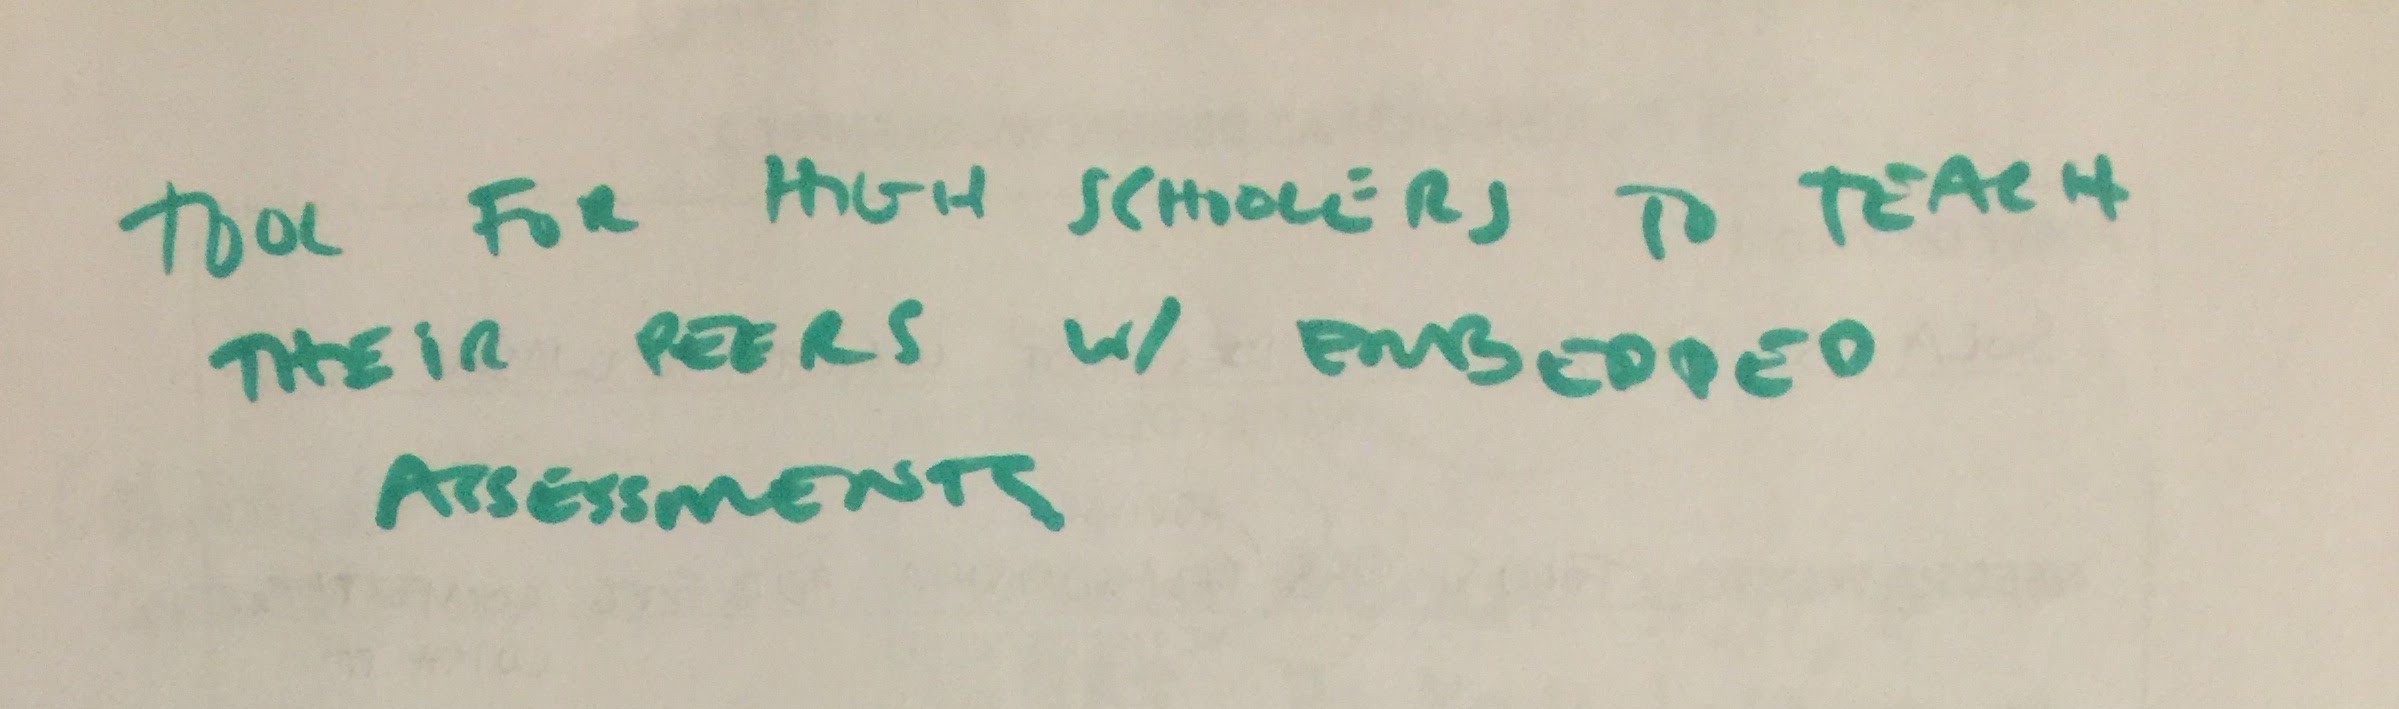 TOOL FOR HIGH SCHOOLERS TO TEACH
THEIR PEERS W/ EMBEDDED
ASSESSMENTS